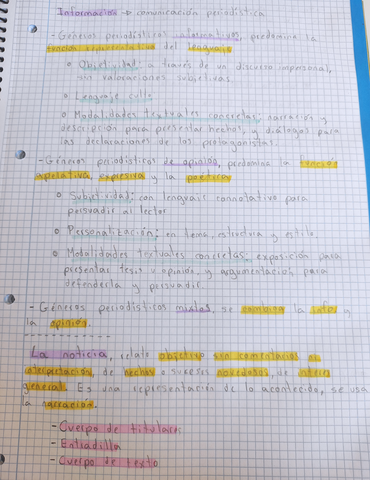 Información → comunicación periodística
- Géneros periodísticos informativos, predomina la
función representativa del lenguaje
o Objetividad: a través de un discurso impersonal,
sin valoraciones subjetivas.
o Lenguaje culto
o Modalidades textuales concretas: narración y
descripción para presentar hechos, y diálogos para
las declaraciones de los protagonistas.
- Géneros periodísticos de opinión, predomina la función
apelativa, expresiva y la poética
o Subjetividad: con lenguaje connotativo para
persuadir al lector
o Personalización: en tema, estructura y estilo
o Modalidades textuales concretas: exposición para
presentar tesis u opinión, y argumentación para
defenderla y persuadir.
- Géneros periodísticos mixtos, se combina la info y
la opinión.
La noticia, relato objetivo sin comentarios ni
interpretación, de hechos o sucesos novedosos, de interés
general. Es una representación de lo acontecido, se usa
la narración.
- Cuerpo de titulares
- Entradilla
- Cuerpo de texto